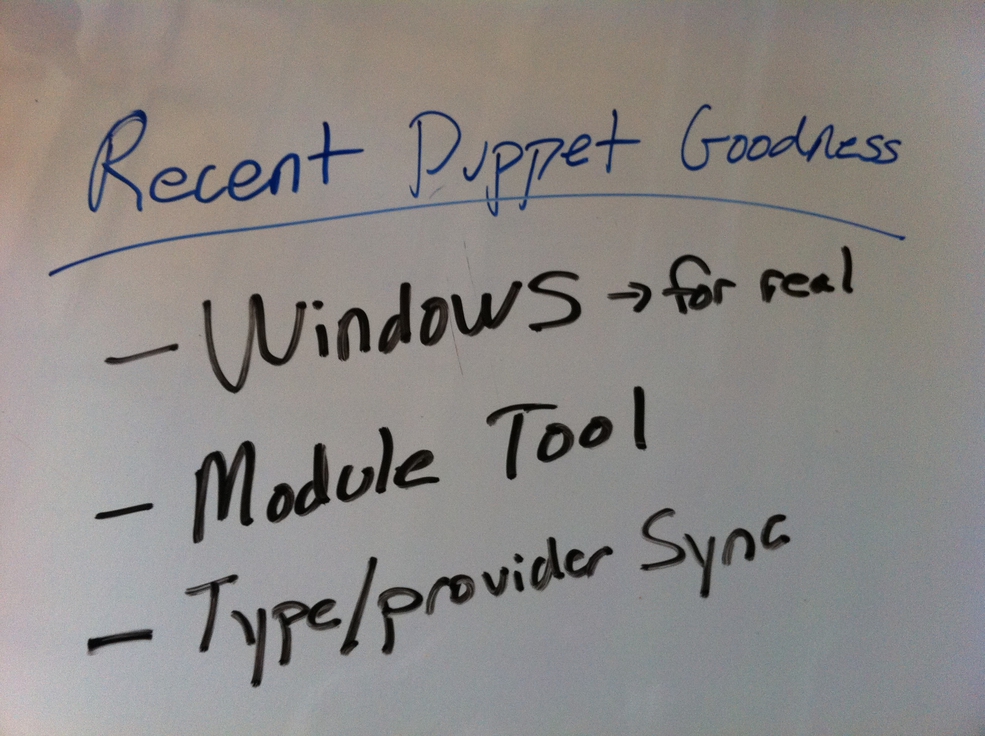 Recent Puppet Goodness
- Windows → for real
- Module Tool
- Type/provider Sync